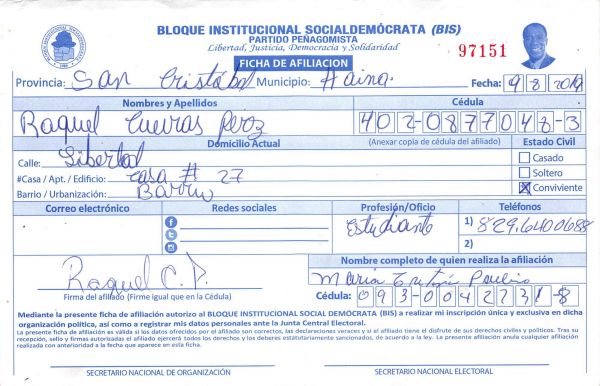 BLOQUE INSTITUCIONAL SOCIALDEMÓCRATA (BIS)
PARTIDO PEÑAGOMISTA
Libertad, Justicia, Democracia y Solidaridad
97151
FICHA DE AFILIACION
Provincia: San Cristóbal Municipio: Haina. Fecha: 9 8 2019
Nombres y Apellidos Cédula
Raquel Cuevas Perez 402-0877048-3
Domicilio Actual (Anexar copia de cédula del afiliado) Estado Civil
Calle: Libertad Casado
#Casa / Apt. / Edificio: casa # 27 Soltero
Barrio / Urbanización: Barrio Conviviente
Correo electrónico Redes sociales Profesión/Oficio Teléfonos
Estudiante 1) 829.6400688
2)
Nombre completo de quien realiza la afiliación
Raquel C. P. María Paulino
Firma del afiliado (Firme igual que en la Cédula) Cédula: 093-0042731-8
Mediante la presente ficha de afiliación autorizo al BLOQUE INSTITUCIONAL SOCIAL DEMÓCRATA (BIS) a realizar mi inscripción única y exclusiva en dicha
organización política, así como a registrar mis datos personales ante la Junta Central Electoral.
La presente ficha de afiliación es válida si los datos ofrecidos por el afiliado son correctos, las declaraciones veraces y si el afiliado tiene el disfrute de sus derechos civiles y políticos. Tras su
recepción, sello y firmas autorizadas el afiliado ejercerá todos los derechos y los deberes estatutariamente sancionados, de acuerdo a la ley. La presente afiliación anula cualquier afiliación
realizada con anterioridad a la fecha que aparece en esta ficha.
SECRETARIO NACIONAL DE ORGANIZACIÓN SECRETARIO NACIONAL ELECTORAL